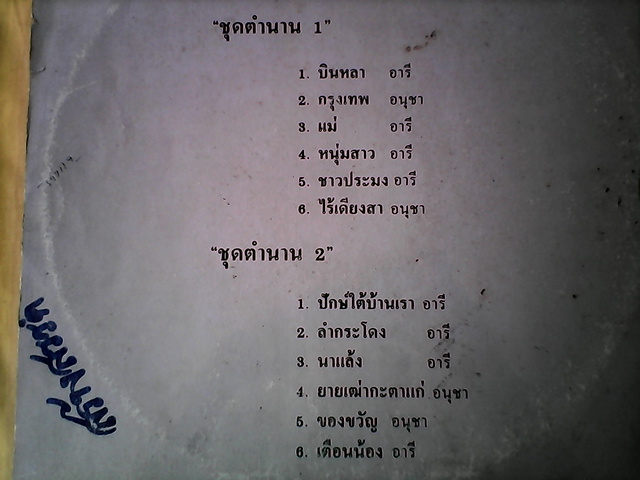 “ชุดตำนาน 1”
1. บินหลา อารี
2. กรุงเทพ อนุชา
3. แม่ อารี
4. หนุ่มสาว อารี
5. ชาวประมง อารี
6. ไร้เดียงสา อนุชา
“ชุดตำนาน 2”
1. ปักษ์ใต้บ้านเรา อารี
2. ลำกระโดง อารี
3. นาแล้ง อารี
4. ยายเฒ่ากะตาแก่ อนุชา
5. ของขวัญ อนุชา
6. เตือนน้อง อารี